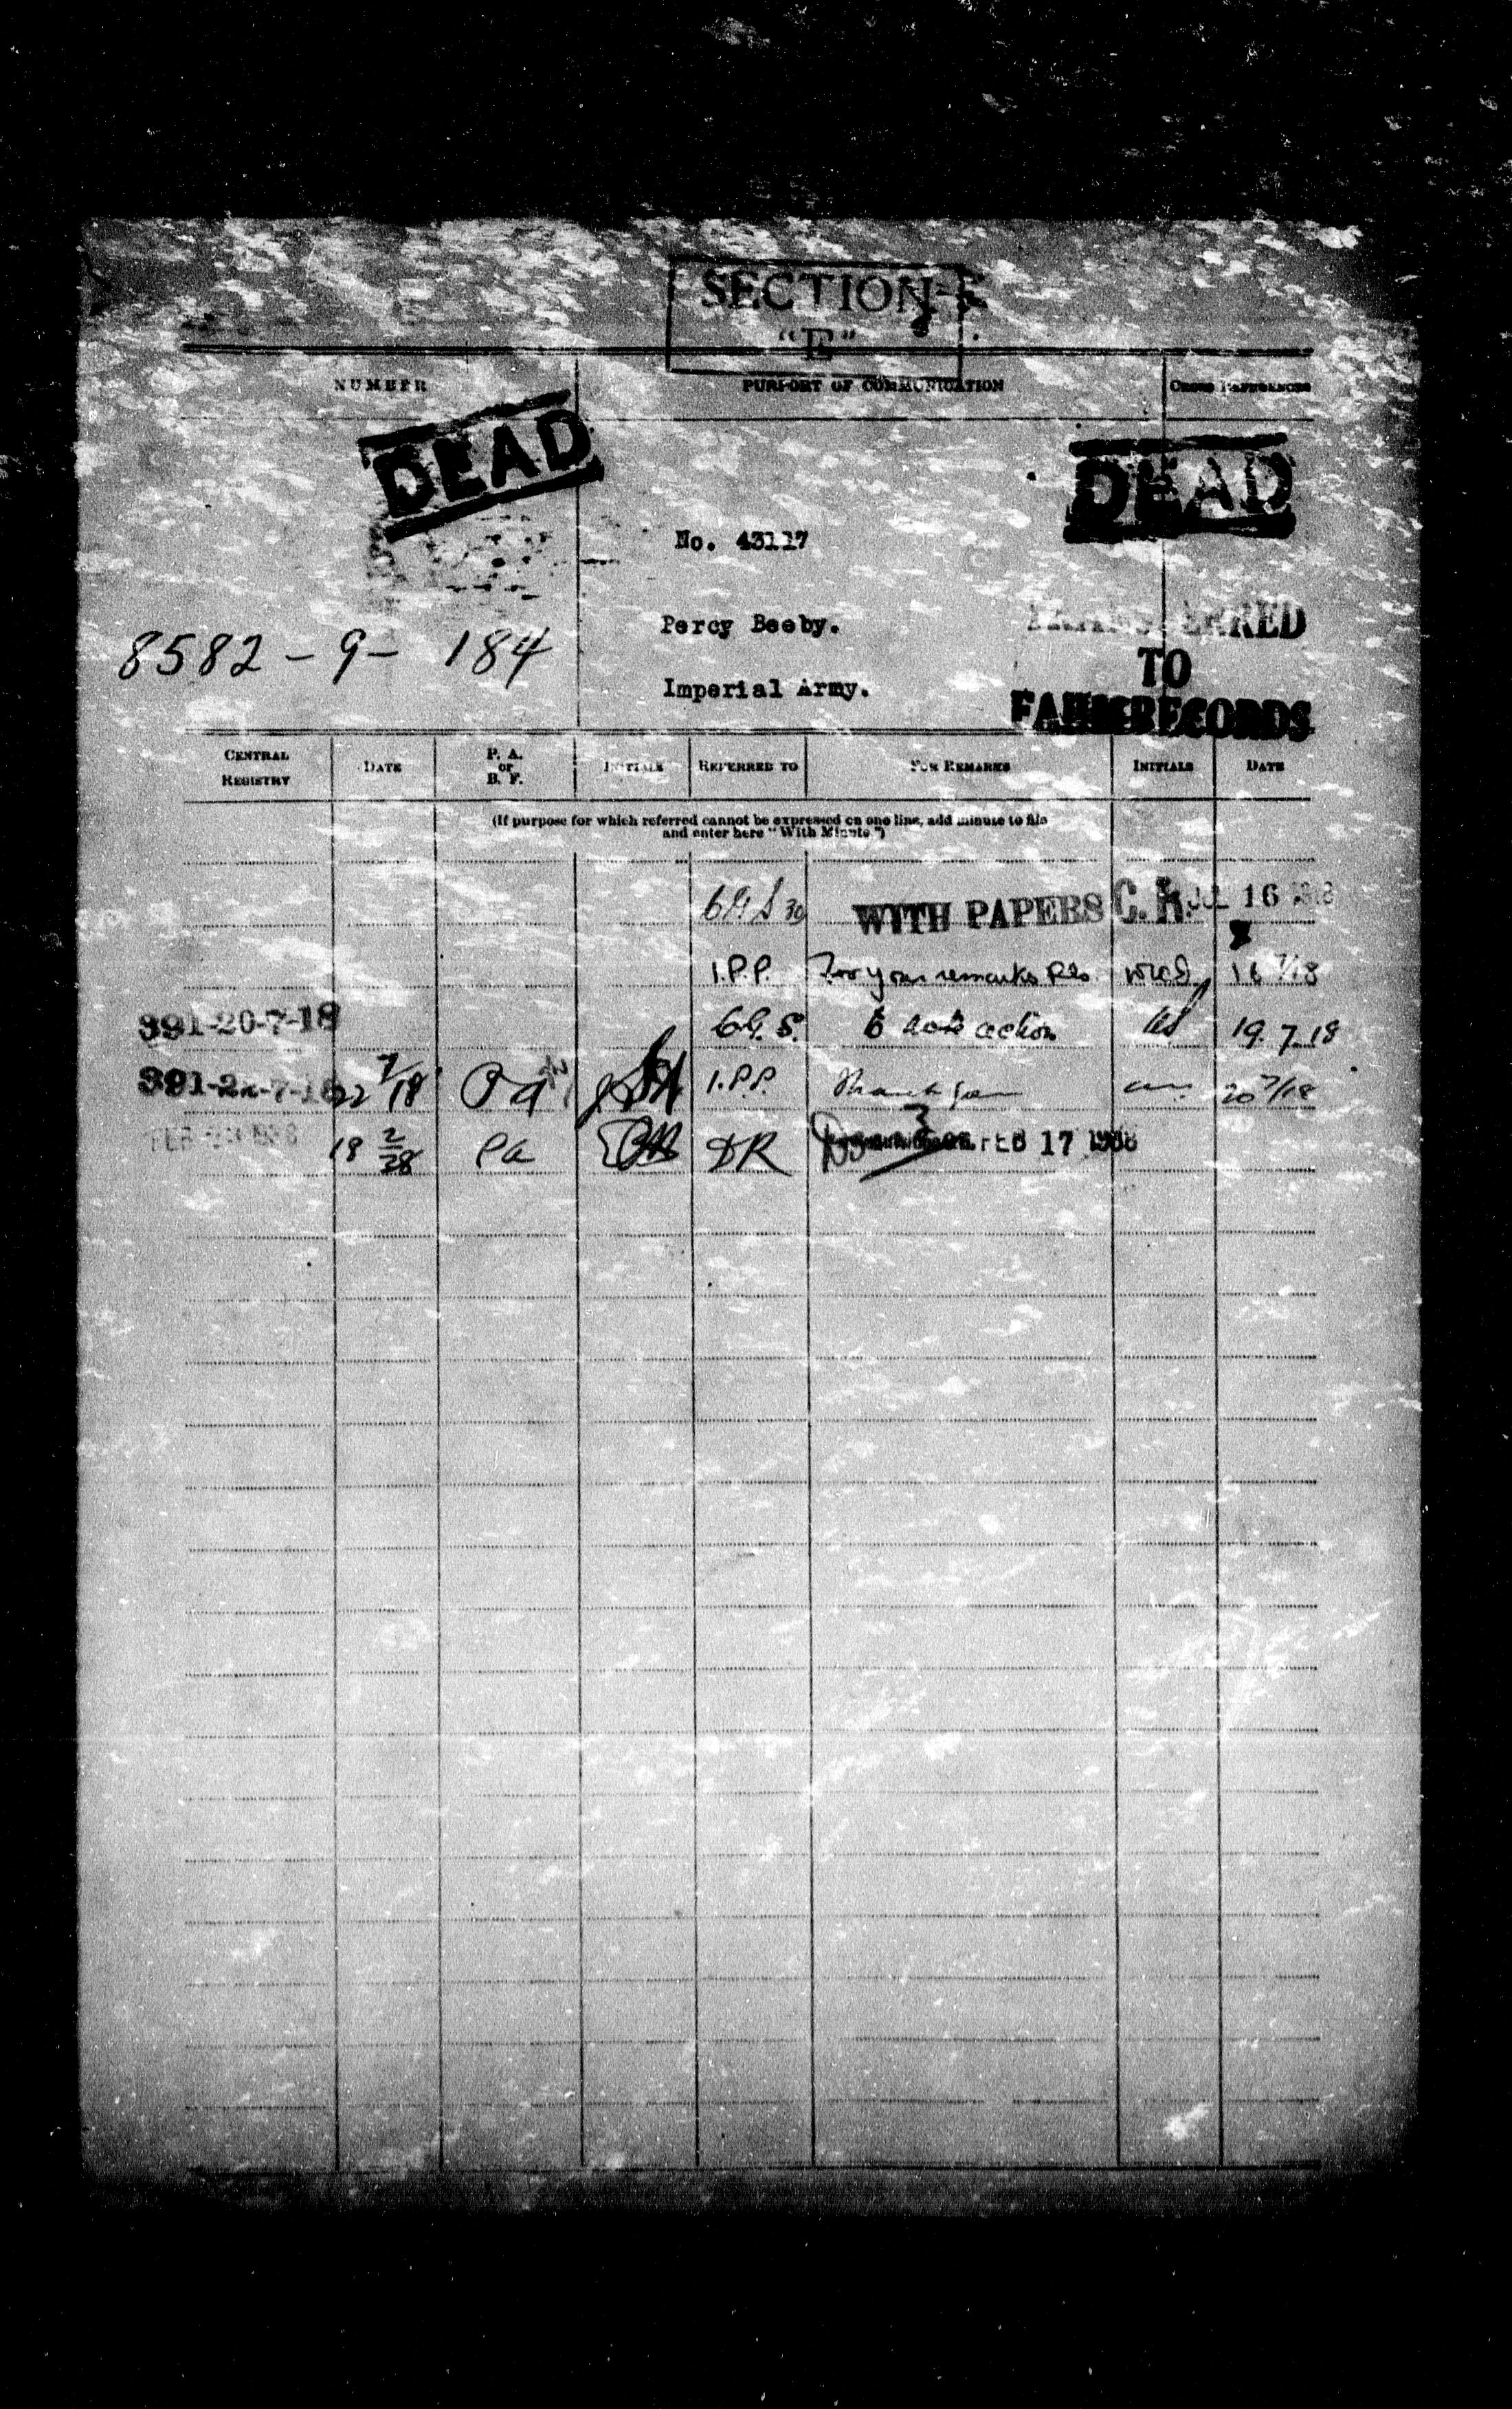 SECTION
"E"
NUMBER PURPORT OF COMMUNICATION CROSS REFERENCES
DEAD DEAD
No. 43117
Percy Beeby.
8582-9-184
Imperial Army.
TRANSFERRED
TO
RECORDS
CENTRAL REGISTRY DATE P. A. OR B. F. INITIALS REFERRED TO FOR REMARKS INITIALS DATE
(If purpose for which referred cannot be expressed on one line, add minute to file
and enter here "With Minute.")
WITH PAPERS C. R. JUL 16 1918
I.P.P. For your remarks pls 16 7/18
391-20-7-18 G.S. to note action 19.7.18
391-22-7-18 22 7/18 Pa I.P.P. 20 7/18
18 2/38 Pa DR FEB 17 1938